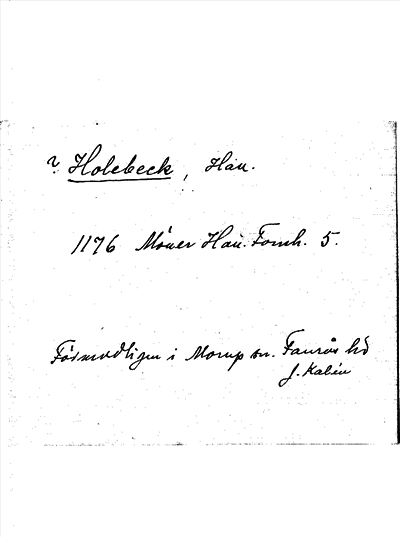 ? Holebeck, Hall.
1176 Möller Hall. Fornh. 5.
Förmodligen i Morup sn. Faurås hd
J. Kalén